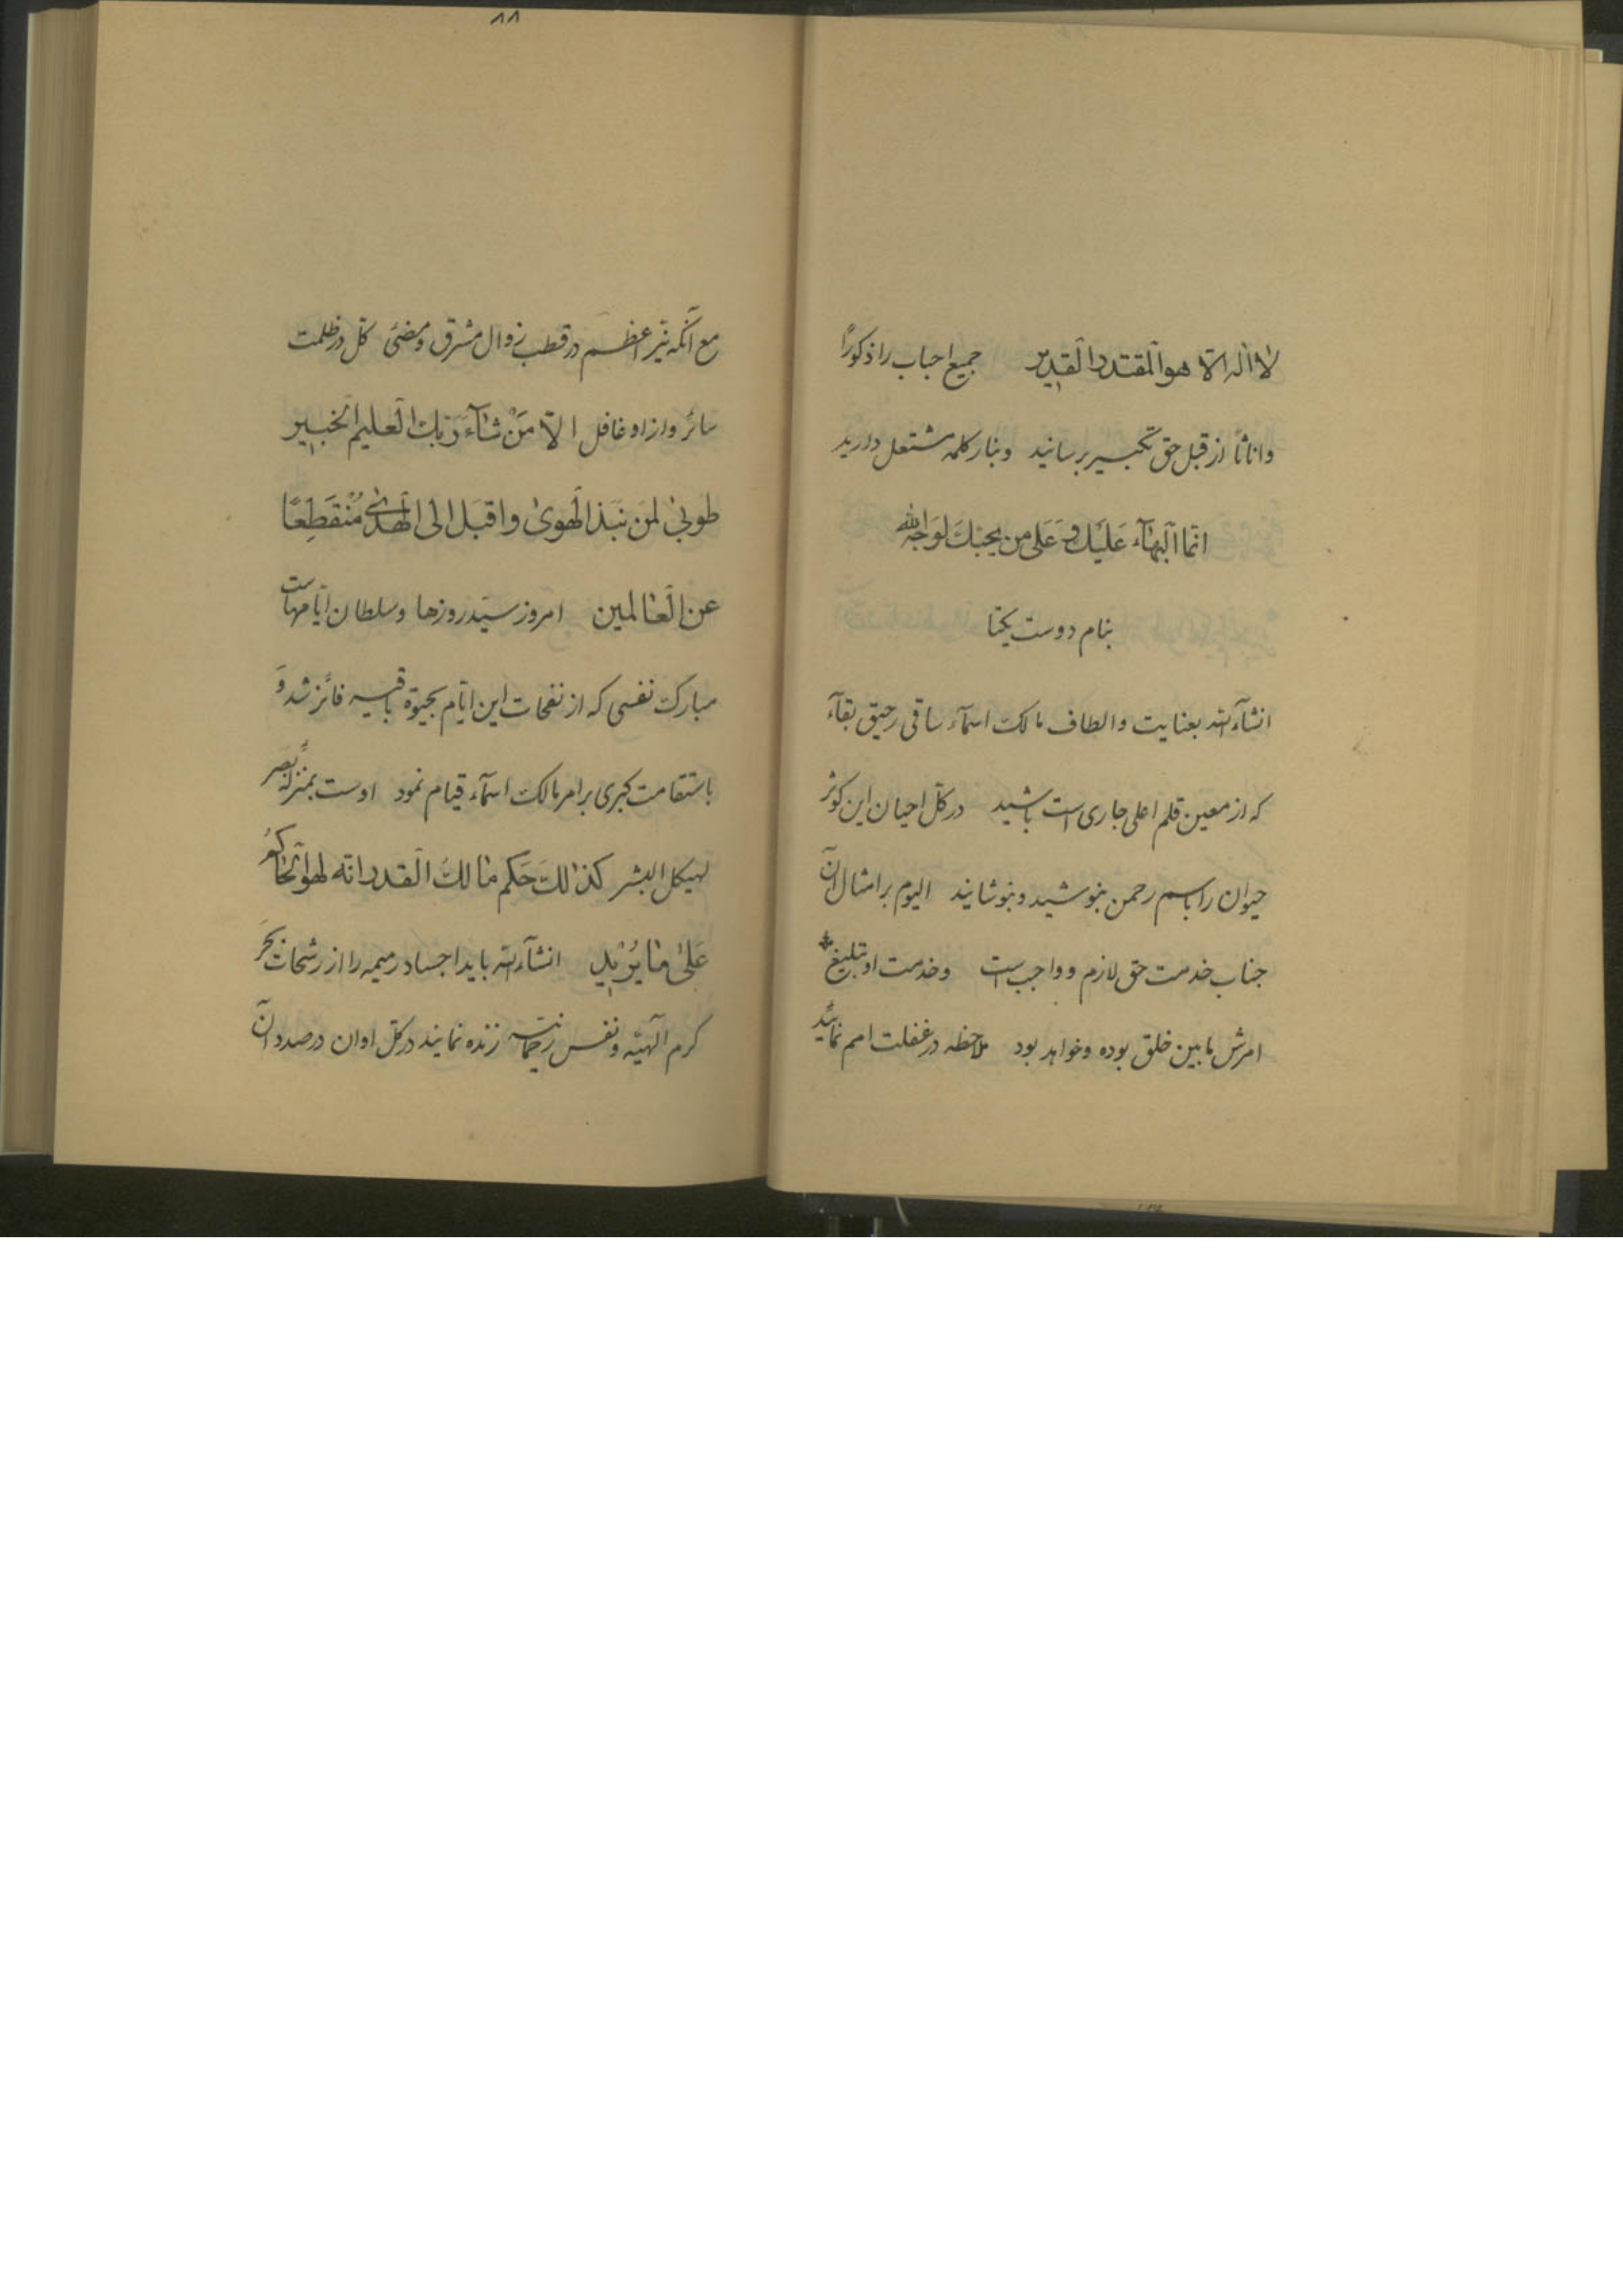 لا اله الّا هو المقتدر القدیر جمیع احباب را ذکورًا
و اناثًا از قبل حق تکبیر برسانید و بنار کلمه مشتعل دارید
انّما البهآء علیک و عَلی من یحبّک لوجه الله
بنام دوست یکتا
انشآءالله بعنایت و الطاف مالک اسمآء ساقی رحیق بقآء
که از معین قلم اعلی جاری است باشید در کلّ احیان این کوثر
حیوان را باسم رحمن بنوشید و بنوشانید الیوم بر امثال آن
جناب خدمت حق لازم و واجب است و خدمت او تبلیغ
امرش مابین خلق بوده و خواهد بود ملاحظه در غفلت امم نمائید
۸۸
مع آنکه نیّر اعظم در قطب زوال مشرق و مضیٔ کلّ در ظلمت
سائر و از او غافل الّا مَنْ شآءَ ربّک العلیم الخبیر
طوبیٰ لمَن نبَذ الهویٰ و اقبَل الی الهُدیٰ مُنْقَطِعًا
عن العالمین امروز سیّد روزها و سلطان ایّامهاست
مبارک نفسی که از نفحات این ایّام بحیوة باقیه فائز شد و
باستقامت کبری بر امر مالک اسمآء قیام نمود اوست بمنزلهٔ بصر
لهیکل البشر کذلکَ حَکم مالکُ القدر انّه لهو الحاکمُ
عَلیٰ ما یُریدِ انشآءالله باید اجساد رمیمه را از رشحات بحر
کرم الهیّه و نفس رحمانیّه زنده نمایند در کلّ اوان درصدد آن